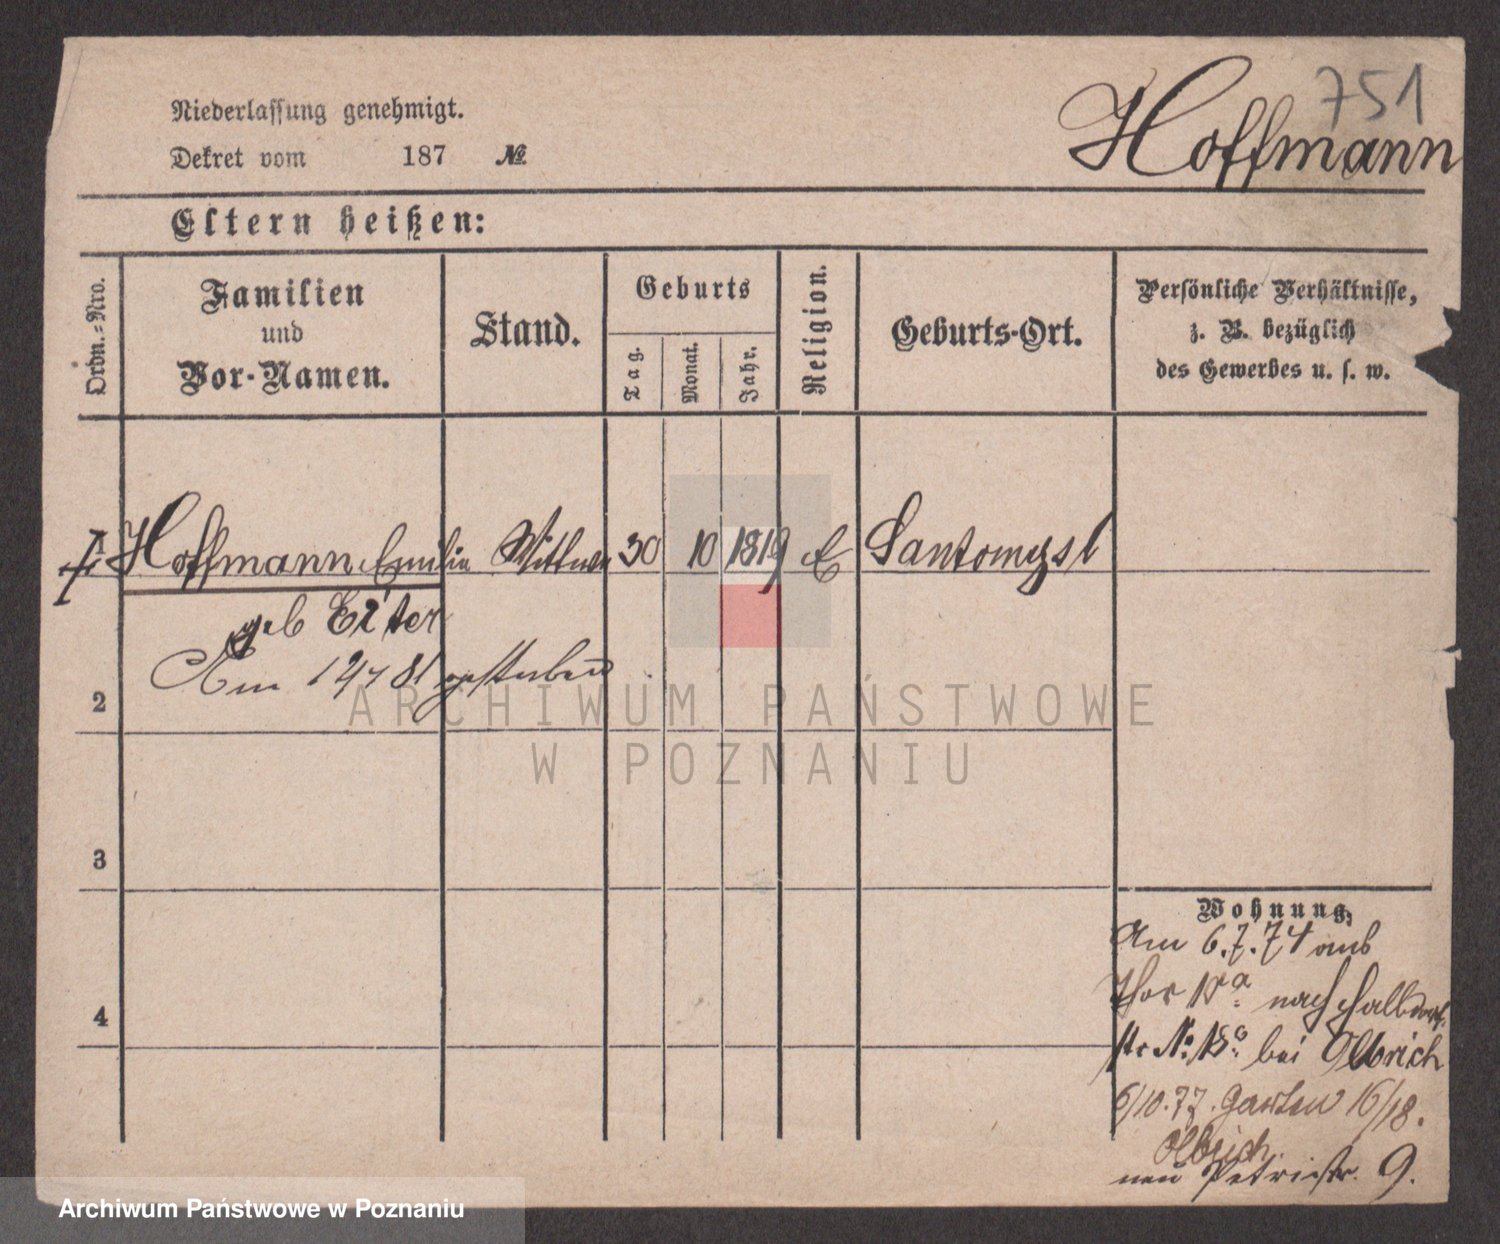 751
Hoffmann
Niederlassung genehmigt.
Dekret vom 187 №
Eltern heißen:
Ordn.-Nro.
Familien
und
Vor-Namen.
Stand.
Geburts
Tag.
Monat.
Jahr.
Religion.
Geburts-Ort.
Persönliche Verhältnisse,
z. B. bezüglich
des Gewerbes u. s. w.
1 Hoffmann Emilie Wittwe 30 10 1819 E Santomysl
geb
Am gestorben
2
ARCHIWUM PAŃSTWOWE
W POZNANIU
3
4
Wohnung.
Am 6.7.74 aus
Thor nach Halbdorf
str No. bei Olbrich
6/10.77. Garten 16/18.
Olbrich
neu Petristr. 9.
Archiwum Państwowe w Poznaniu